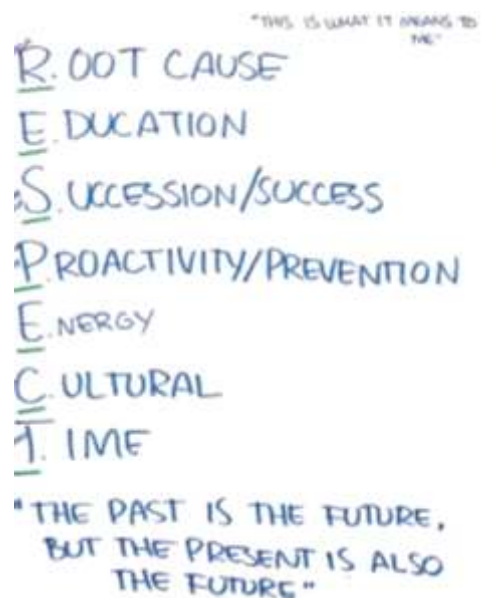 "THIS IS WHAT IT MEANS TO
ME"
R.OOT CAUSE
E.DUCATION
S.UCCESSION/SUCCESS
P.ROACTIVITY/PREVENTION
E.NERGY
C.ULTURAL
T.IME
"THE PAST IS THE FUTURE,
BUT THE PRESENT IS ALSO
THE FUTURE"